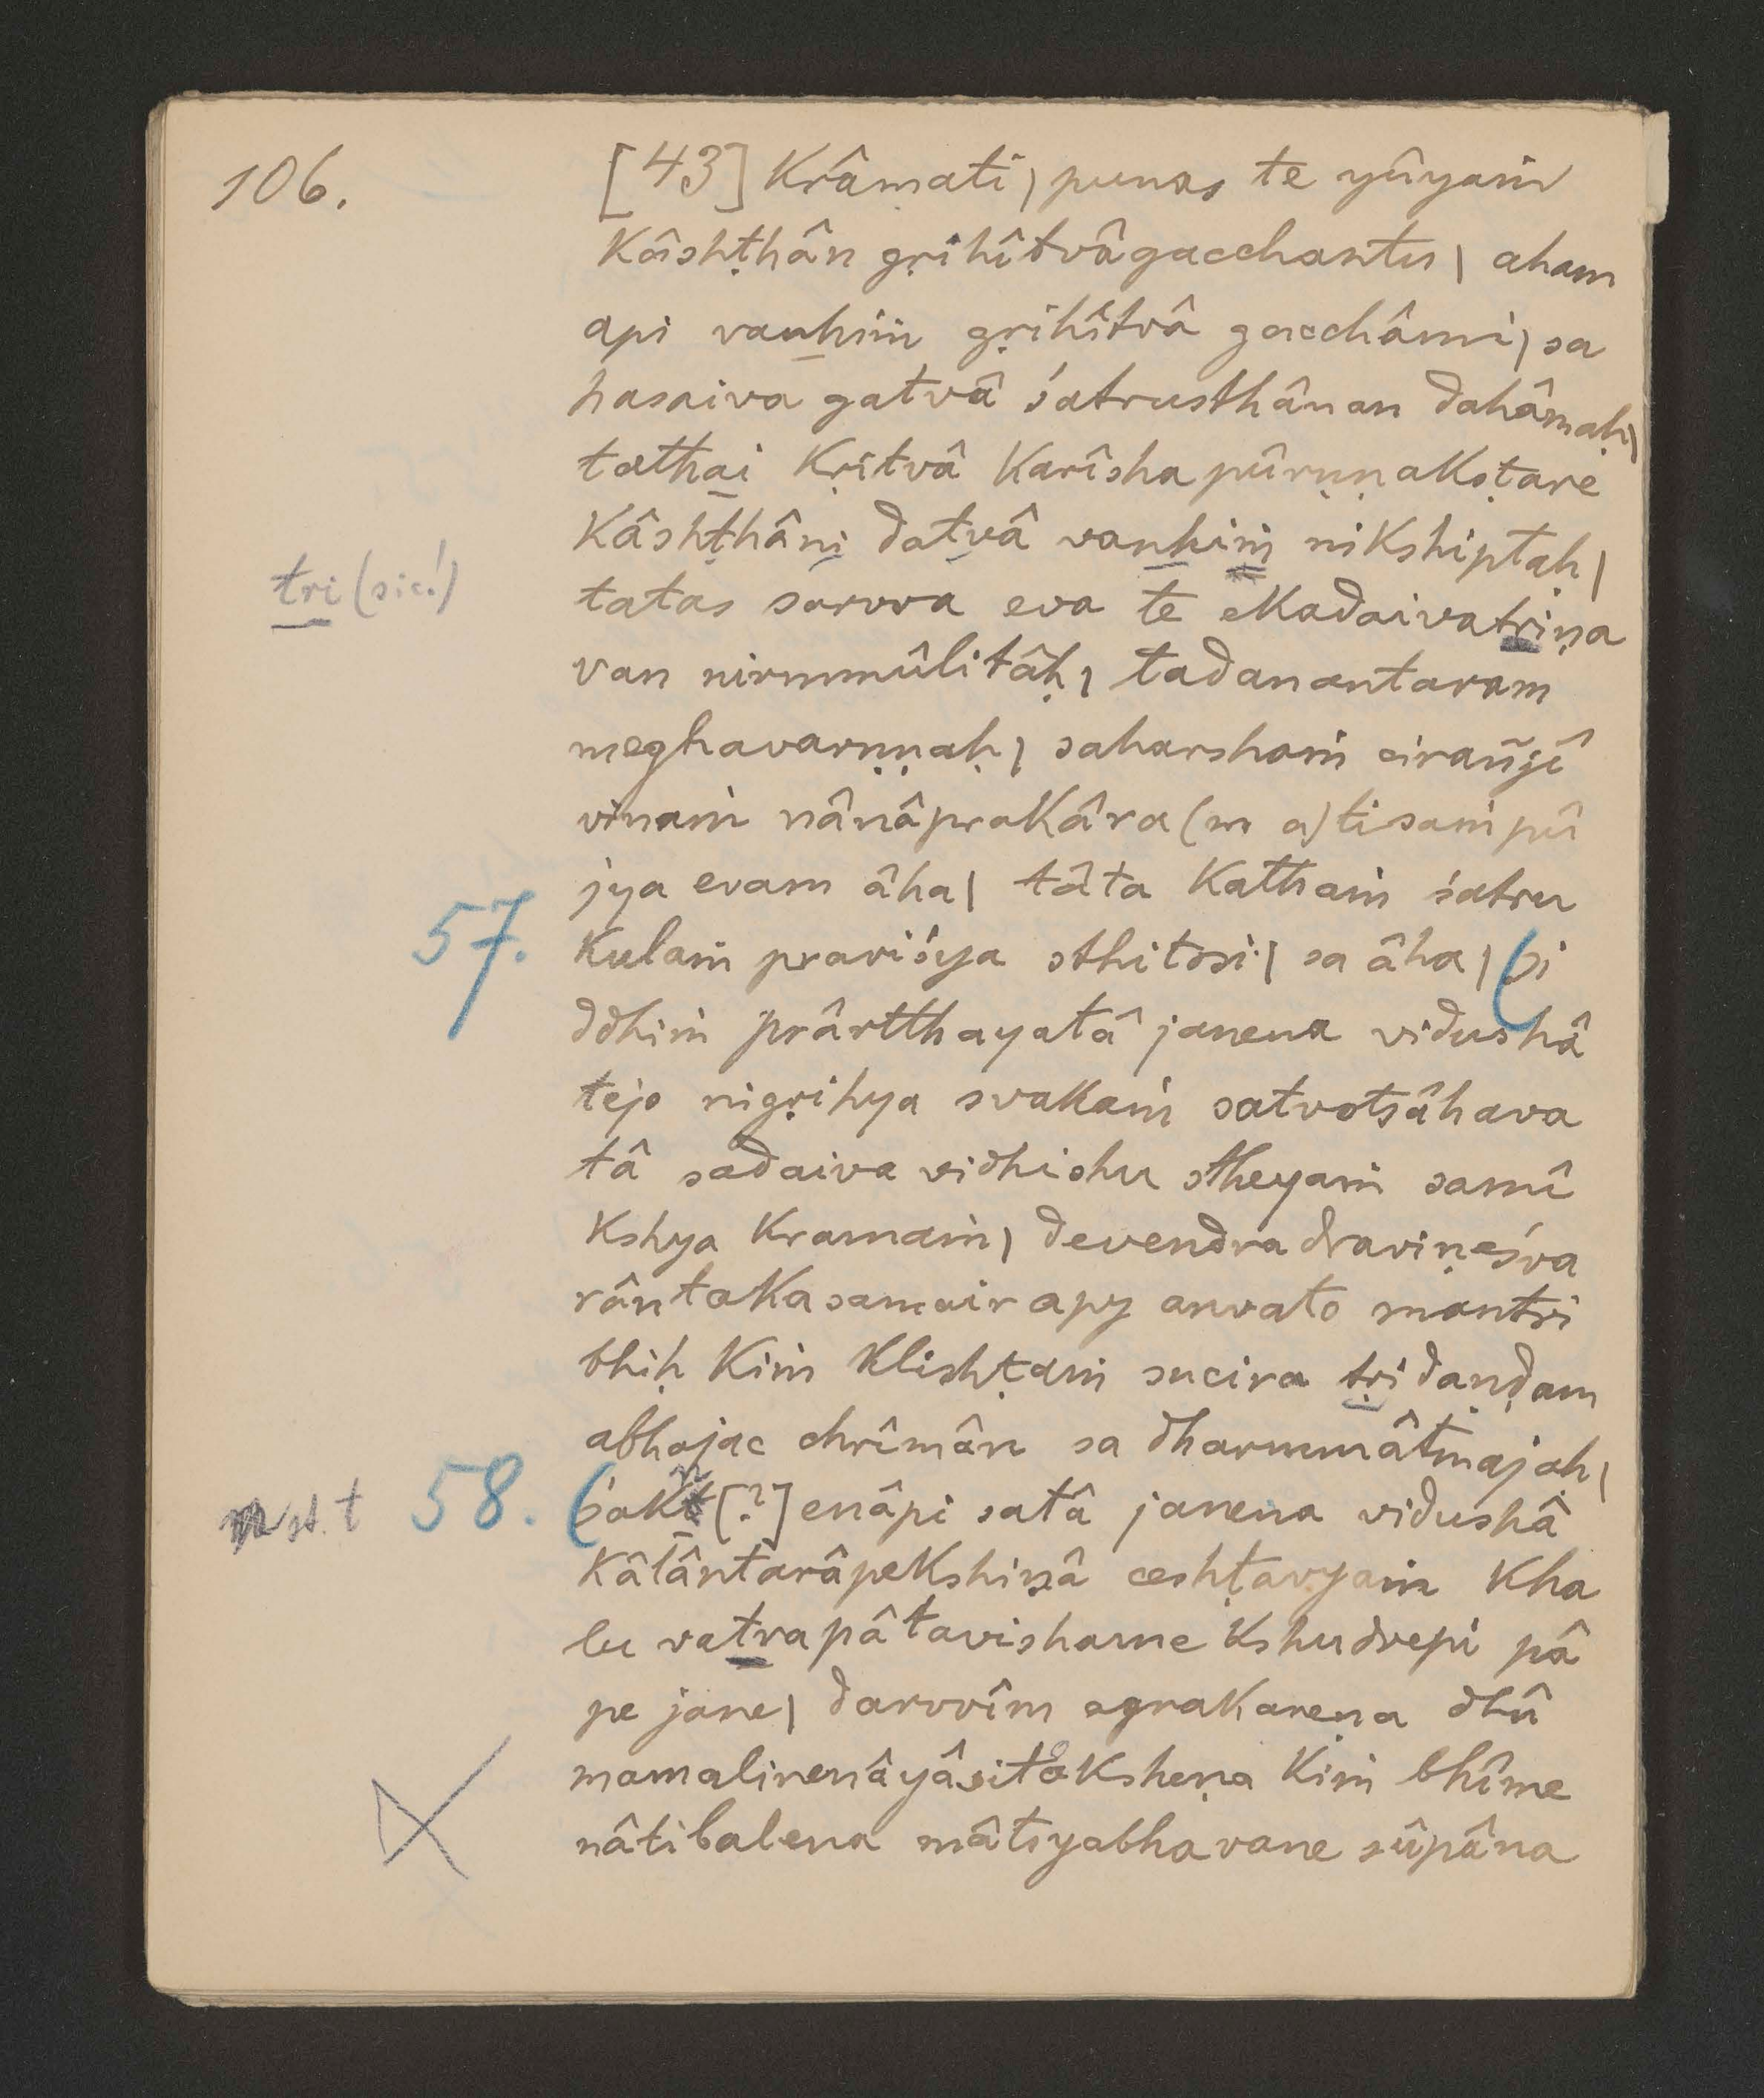 106.
[43] krâmati | punas te yûyaṁ
kâshṭhân gṛihîtvâgacchantu | aham
api vanhiṁ gṛihîtvâ gacchâmi | sa
hasaiva gatvâ śatrusthânan dahâmaḥ |
tathai kṛitvâ karîshapûrṇṇakoṭare
kâshṭhâni datvâ vanhiṁ nikshiptaḥ |
tri (sic!)
tatas sarvva eva te ekadaivatriṇa
van nirmmûlitâḥ | tadanantaram
meghavarṇṇaḥ | saharshaṁ cirañjî
vinaṁ nânâprakâra(m a)tisaṁpû
jya evam âha | tâta kathaṁ śatru
57. kulaṁ praviśya sthitosi | sa âha | (si
ddhiṁ prârtthayatâ janena vidushâ
tejo nigṛihya svakaṁ satvotsâhava
tâ sadaiva vidhishu stheyaṁ samî
kshya kramaṁ | devendradraviṇeśva
rântakasamair apy anvato mantri
bhiḥ kiṁ klishṭaṁ sucira tṛidaṇḍam
abhajac chrîmân sa dharmmâtmajaḥ |
n st. t 58. (śakt[?]enâpi satâ janena vidushâ
n
kâlântarâpekshiṇâ ceshṭavyaṁ kha
lu vatrapâtavishame kshudrepi pâ
pe jane | darvvîm agrakareṇa dhû
mamalinenâyâsitâksheṇa kiṁ bhîme
nâtibalena mâtsyabhavane sûpâna